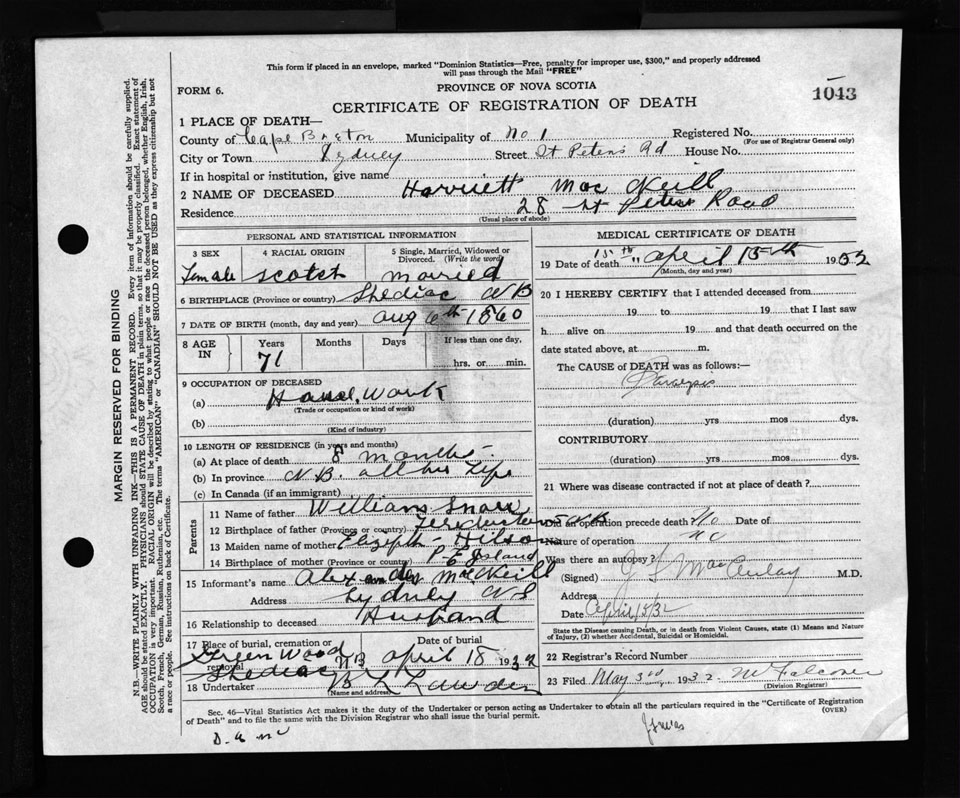 This form if placed in an envelope, marked "Dominion Statistics—Free, penalty for improper use, $300," and properly addressed
will pass through the Mail "FREE"
FORM 6.
PROVINCE OF NOVA SCOTIA
1043
CERTIFICATE OF REGISTRATION OF DEATH
1 PLACE OF DEATH—
County of Cape Breton Municipality of No 1 Registered No.
(For use of Registrar General only)
City or Town Sydney Street St Peters Rd House No.
If in hospital or institution, give name
2 NAME OF DECEASED Harriett Mac Neill
Residence 28 St Peters Road
(Usual place of abode)
PERSONAL AND STATISTICAL INFORMATION
3 SEX 4 RACIAL ORIGIN 5 Single, Married, Widowed or
Divorced. (Write the word)
Female Scotch Married
6 BIRTHPLACE (Province or country) Shediac N B
7 DATE OF BIRTH (month, day and year) Aug 6th 1860
8 AGE IN Years Months Days If less than one day,
71 hrs. or min.
9 OCCUPATION OF DECEASED
(a) House Work
(Trade or occupation or kind of work)
(b)
(Kind of industry)
10 LENGTH OF RESIDENCE (in years and months)
(a) At place of death 8 months
(b) In province N.B. all her Life
(c) In Canada (if an immigrant)
Parents
11 Name of father William
12 Birthplace of father (Province or country)
13 Maiden name of mother
14 Birthplace of mother (Province or country) P-E Island
15 Informant's name Alexander MacNeill
Address Sydney N S
16 Relationship to deceased Husband
17 Place of burial, cremation or removal Date of burial
Green Wood
Shediac N B April 18 1932
18 Undertaker
(Name and address)
MEDICAL CERTIFICATE OF DEATH
19 Date of death 15th " April 15th 1932
(Month, day and year)
20 I HEREBY CERTIFY that I attended deceased from
19 to 19 that I last saw
h alive on 19 and that death occurred on the
date stated above, at m.
The CAUSE of DEATH was as follows:—
Paralysis
(duration) yrs mos dys.
CONTRIBUTORY
(duration) yrs mos dys.
21 Where was disease contracted if not at place of death?
Did an operation precede death No Date of
Nature of operation
Was there an autopsy? no
(Signed) MacAulay M.D.
Address
Date April 15/32
State the Disease causing Death, or in death from Violent Causes, state (1) Means and Nature
of Injury, (2) whether Accidental, Suicidal or Homicidal.
22 Registrar's Record Number
23 Filed May 3rd, 1932
(Division Registrar)
Sec. 46—Vital Statistics Act makes it the duty of the Undertaker or person acting as Undertaker to obtain all the particulars required in the "Certificate of Registration
of Death" and to file the same with the Division Registrar who shall issue the burial permit.
(OVER)
MARGIN RESERVED FOR BINDING
N.B.—WRITE PLAINLY WITH UNFADING INK—THIS IS A PERMANENT RECORD. Every item of information should be carefully supplied.
AGE should be stated EXACTLY. PHYSICIANS should STATE CAUSE OF DEATH in plain terms, so that it may be properly classified. Exact statement of
OCCUPATION is very important. RACIAL ORIGIN will be described by stating to what people or race the deceased person belonged, whether English, Irish,
Scotch, French, German, Russian, Ruthenian, etc. The terms "AMERICAN" or "CANADIAN" SHOULD NOT BE USED as they express citizenship but not
a race or people. See instructions on back of Certificate.